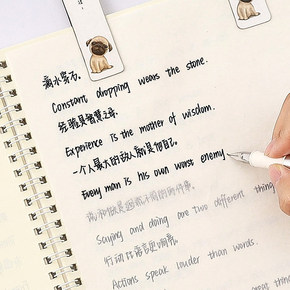 滴水穿石。
Constant dropping wears the stone.
经验是智慧之母。
Experience is the mother of wisdom.
一个人最大的敌人就是他自己。
Every man is his own worst enemy.
说和做是两码不同的事情。
Saying and doing are two different thing
行动比语言更响亮。
Actions speak louder than words.